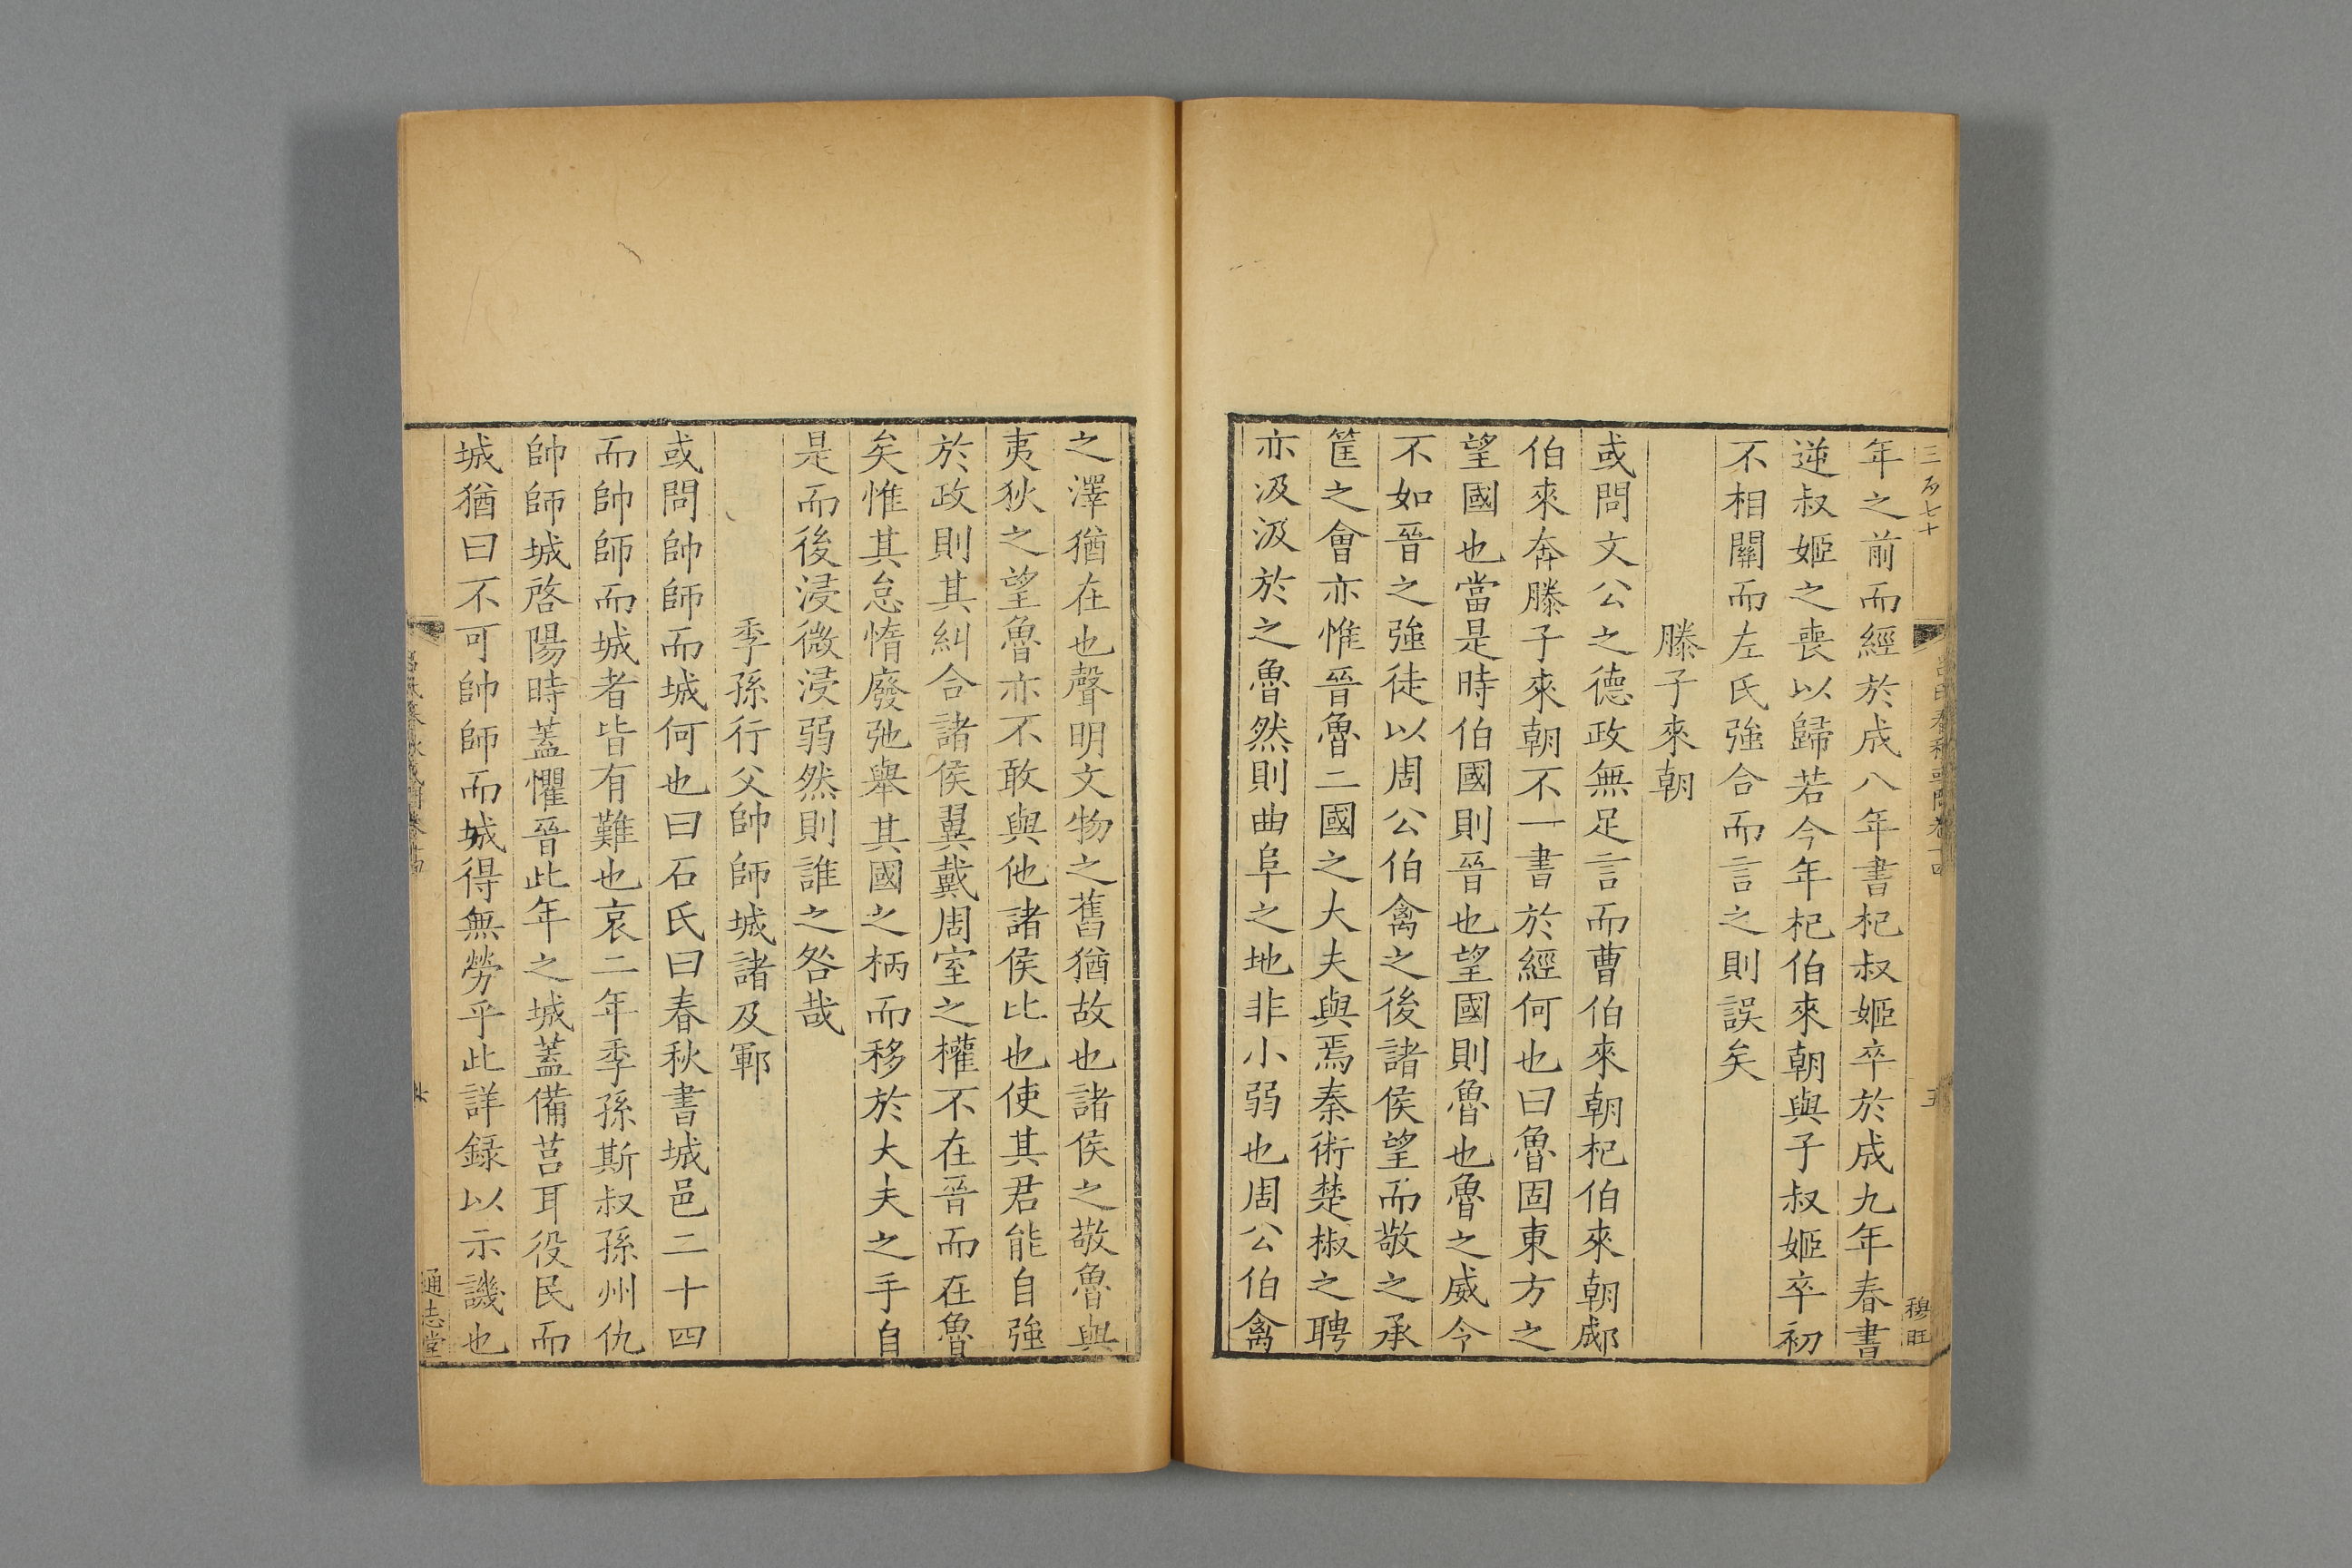 三百七十
年之前而經於成八年書杞叔姬卒於成九年春書
逆叔姬之喪以歸若今年杞伯來朝與子叔姬卒初
不相關而左氏強合而言之則誤矣
滕子來朝
或問文公之德政無足言而曹伯來朝杞伯來朝郕
伯來奔滕子來朝不一書於經何也曰魯固東方之
望國也當是時伯國則晉也望國則魯也魯之威令
不如晉之強徒以周公伯禽之後諸侯望而敬之承
筐之會亦惟晉魯二國之大夫與焉秦術楚椒之聘
亦汲汲於之魯然則曲阜之地非小弱也周公伯禽
穆旺
之澤猶在也聲明文物之舊猶故也諸侯之敬魯與
夷狄之望魯亦不敢與他諸侯比也使其君能自強
於政則其糾合諸侯翼戴周室之權不在晉而在魯
矣惟其怠惰廢弛舉其國之柄而移於大夫之手自
是而後浸微浸弱然則誰之咎哉
季孫行父帥師城諸及鄆
或問帥師而城何也曰石氏曰春秋書城邑二十四
而帥師而城者皆有難也哀二年季孫斯叔孫州仇
帥師城啓陽時蓋懼晉此年之城蓋備莒耳役民而
城猶曰不可帥師而城得無勞乎此詳録以示譏也
通志堂